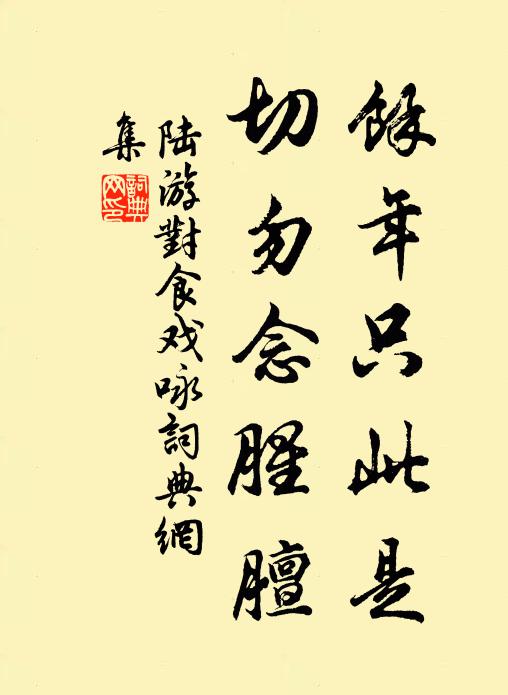 餘年只此是
切勿念腥膻
陆游對食戏咏詞典網
集
詞典网印